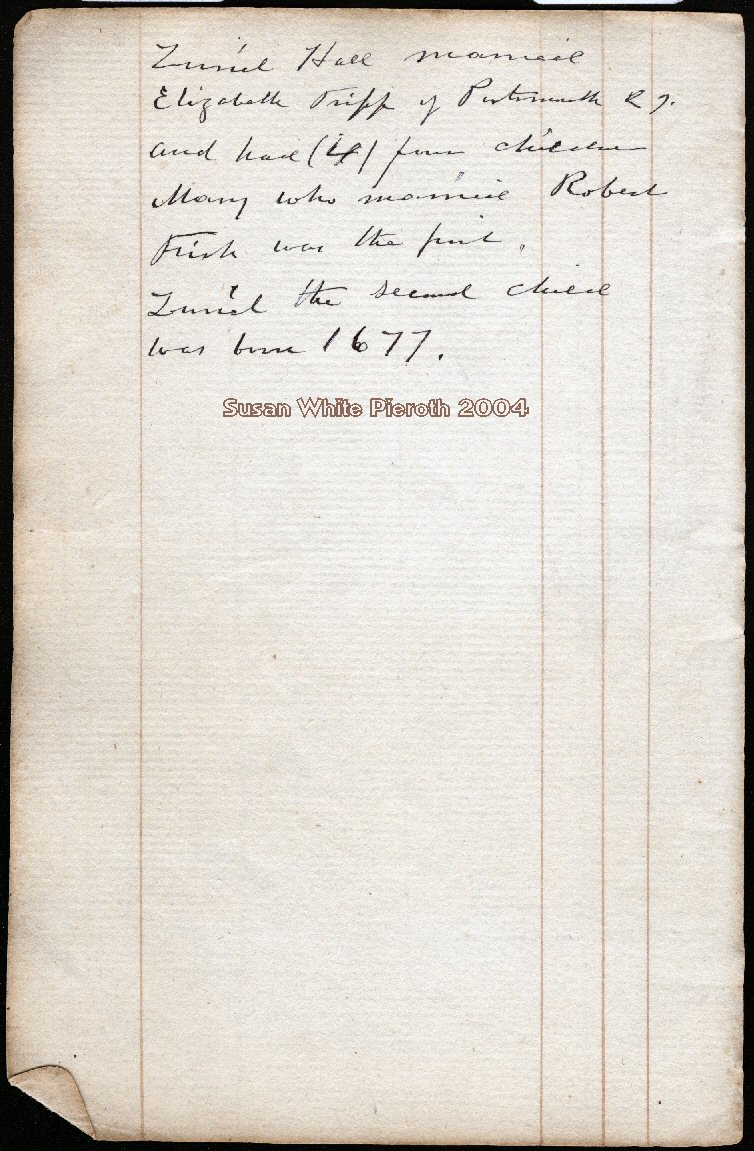 Zuriel Hall married
Elizabeth Tripp of Portsmouth R I.
and had (4) four children
Mary who married Robert
Fish was the first.
Zuriel the second child
was born 1677.
Susan White Pieroth 2004